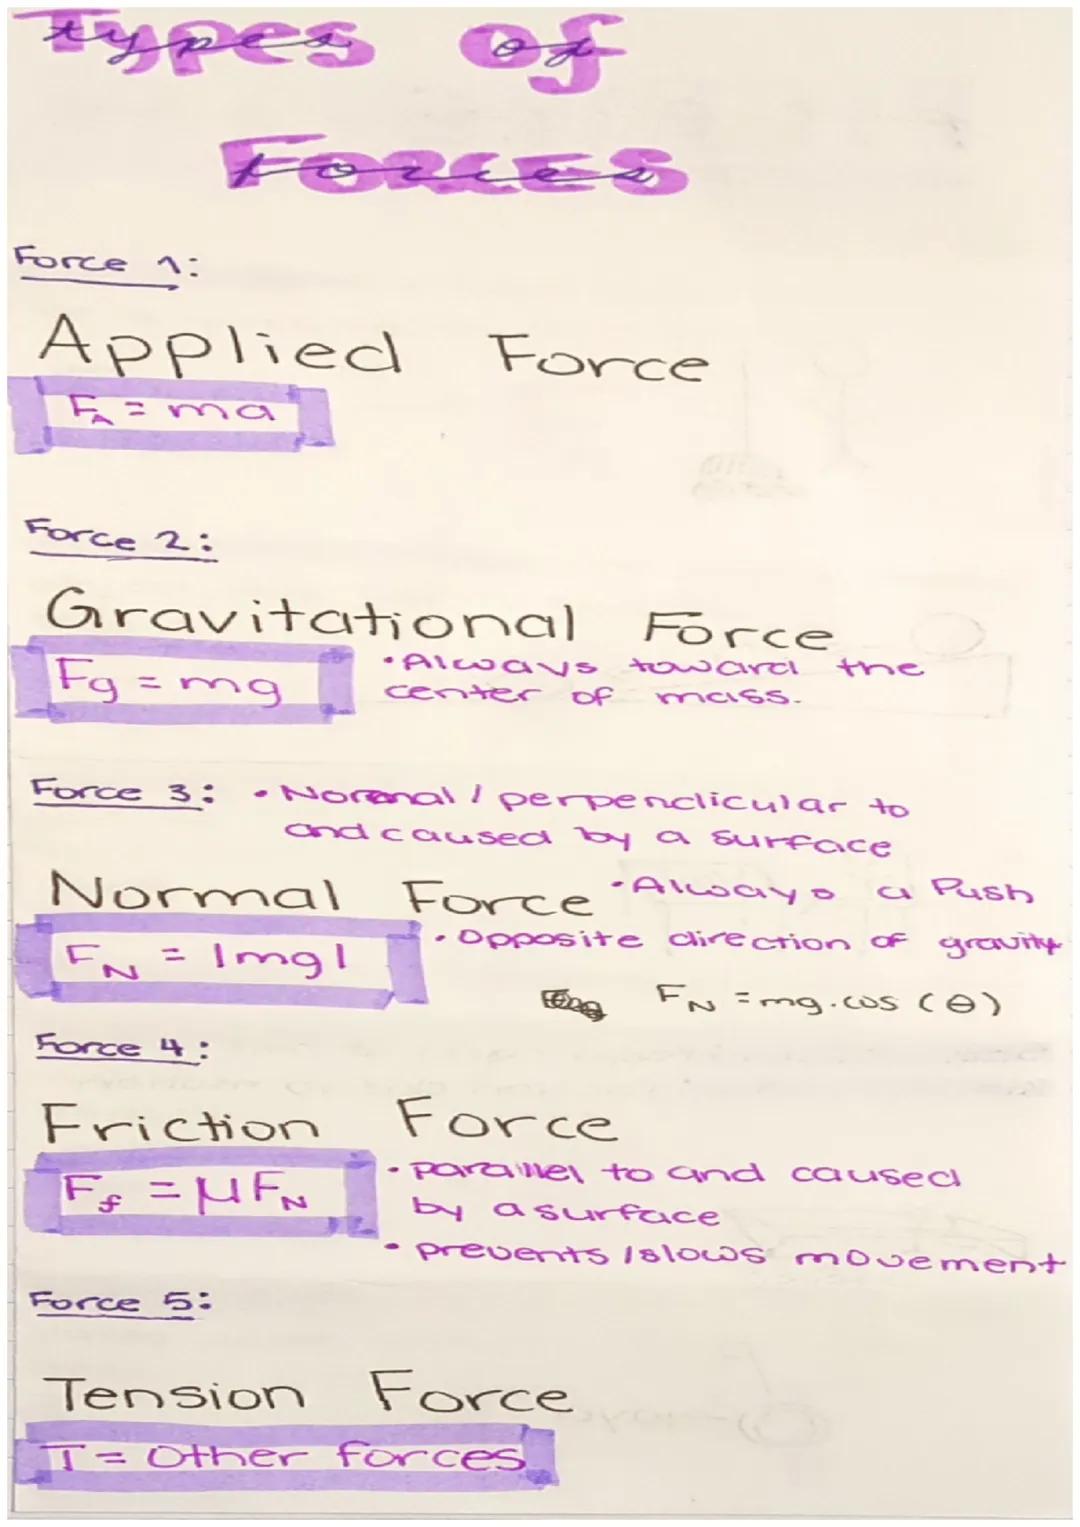 Types of
Forces
Force 1:
Applied Force
F_A = ma
Force 2:
Gravitational Force
Fg = mg
• Always toward the
center of mass.
Force 3: • Normal / perpendicular to
and caused by a surface
Normal Force
• Always a Push
F_N = |mg|
• Opposite direction of gravity
F_N = mg.cos (θ)
Force 4:
Friction Force
F_f = μF_N
• parallel to and caused
by a surface
• prevents / slows movement
Force 5:
Tension Force
T = Other forces